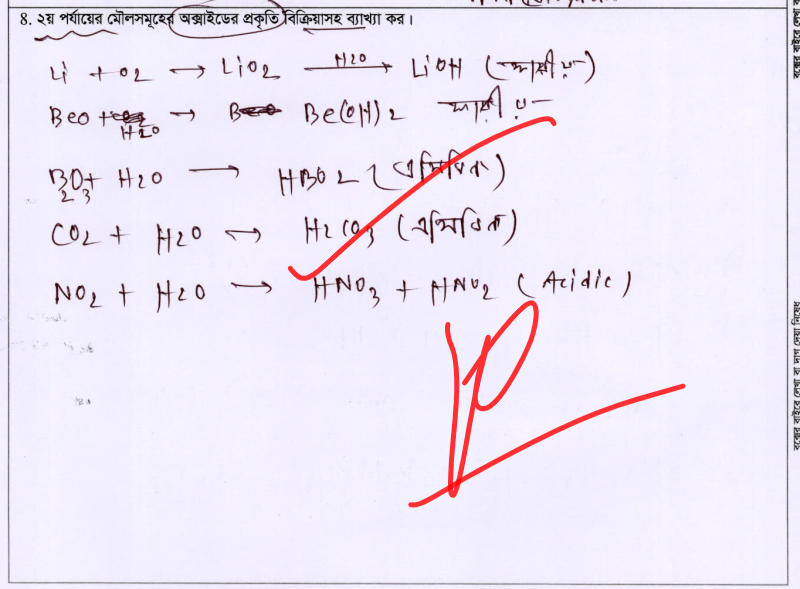 8. ২য় পর্যায়ের মৌলসমূহের অক্সাইডের প্রকৃতি বিক্রিয়াসহ ব্যাখ্যা কর।
Li + O2 → LiO2 H2O → LiOH (ক্ষারীয়)
BeO + H2O → Be(OH)2 ক্ষারীয়
B2O3 + H2O → HBO2 (এসিডিক)
CO2 + H2O → H2CO3 (এসিডিক)
NO2 + H2O → HNO3 + HNO2 (Acidic)